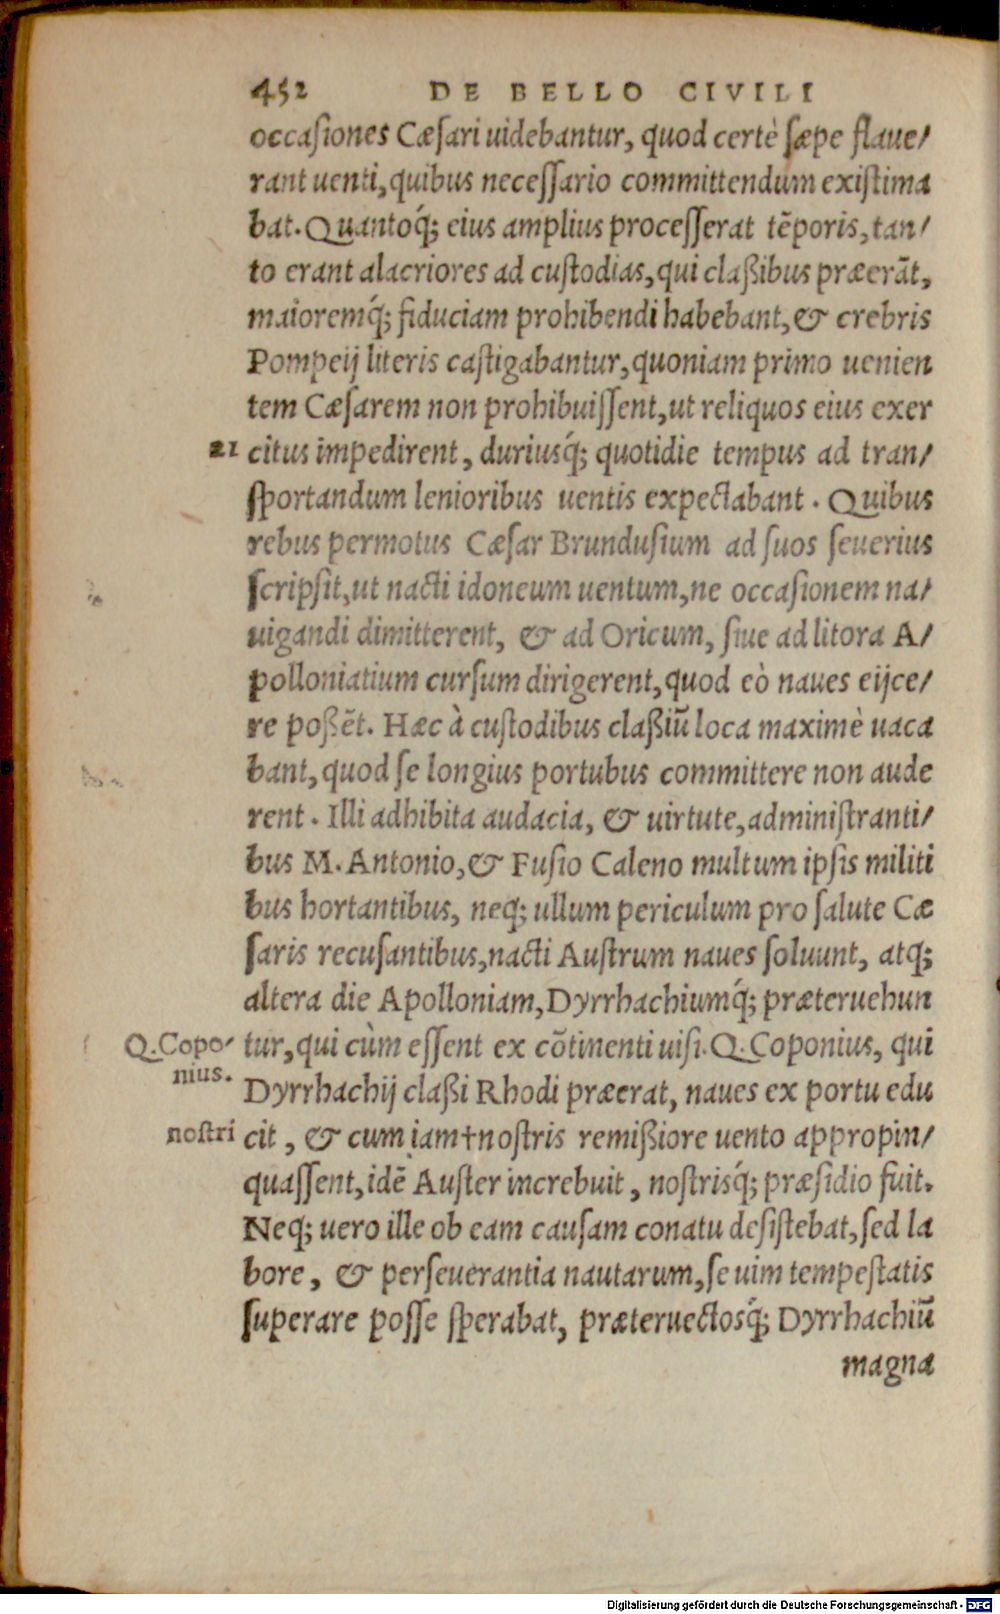 452 DE BELLO CIVILI
occaſiones Cæſari uidebantur, quod certè ſæpe flaue/
rant uenti, quibus neceſſario committendum exiſtima
bat. Quantoq́; eius amplius proceſſerat tēporis, tan/
to erant alacriores ad cuſtodias, qui claßibus præerāt,
maioremq́; fiduciam prohibendi habebant, & crebris
Pompeij literis caſtigabantur, quoniam primo uenien
tem Cæſarem non prohibuiſſent, ut reliquos eius exer
21 citus impedirent, duriusq́; quotidie tempus ad tran/
ſportandum lenioribus uentis expectabant. Quibus
rebus permotus Cæſar Brunduſium ad ſuos ſeuerius
ſcripſit, ut nacti idoneum uentum, ne occaſionem na/
uigandi dimitterent, & ad Oricum, ſiue ad litora A/
polloniatium curſum dirigerent, quod eò naues eijce/
re poßēt. Hæc à cuſtodibus claßiū loca maximè uaca
bant, quod ſe longius portubus committere non aude
rent. Illi adhibita audacia, & uirtute, adminiſtranti/
bus M. Antonio, & Fuſio Caleno multum ipſis militi
bus hortantibus, neq; ullum periculum pro ſalute Cæ
ſaris recuſantibus, nacti Auſtrum naues ſoluunt, atq;
altera die Apolloniam, Dyrrhachiumq́; præteruehun
Q. Copo/ tur, qui cùm eſſent ex cōtinenti uiſi. Q. Coponius, qui
nius. Dyrrhachij claßi Rhodi præerat, naues ex portu edu
noſtri cit, & cum iam†noſtris remißiore uento appropin/
quaſſent, idē Auſter increbuit, noſtrisq́; præſidio fuit.
Neq; uero ille ob eam cauſam conatu deſiſtebat, ſed la
bore, & perſeuerantia nautarum, ſe uim tempeſtatis
ſuperare poſſe ſperabat, præteruectosq́; Dyrrhachiū
magna
Digitalisierung gefördert durch die Deutsche Forschungsgemeinschaft - DFG